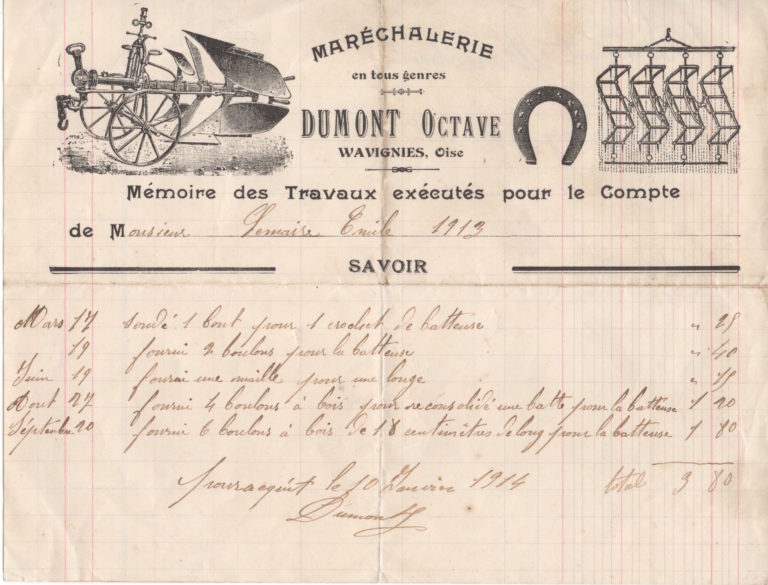 MARÉCHALERIE
en tous genres
DUMONT OCTAVE
WAVIGNIES, Oise
Mémoire des Travaux exécutés pour le Compte
de Monsieur Lemaire Emile 1913
SAVOIR
Mars 17 soudé 1 bout pour 1 crochet de batteuse " 25
19 fourni 2 boulons pour la batteuse " 40
Juin 19 fourni une maille pour une longe " 15
Aout 27 fourni 4 boulons à bois pour reconsolidé une batte pour la batteuse 1 20
Septembre 20 fourni 6 boulons à bois de 18 centimètres de long pour la batteuse 1 80
pouracquit le 10 Janvier 1914 total 3 80
Dumont